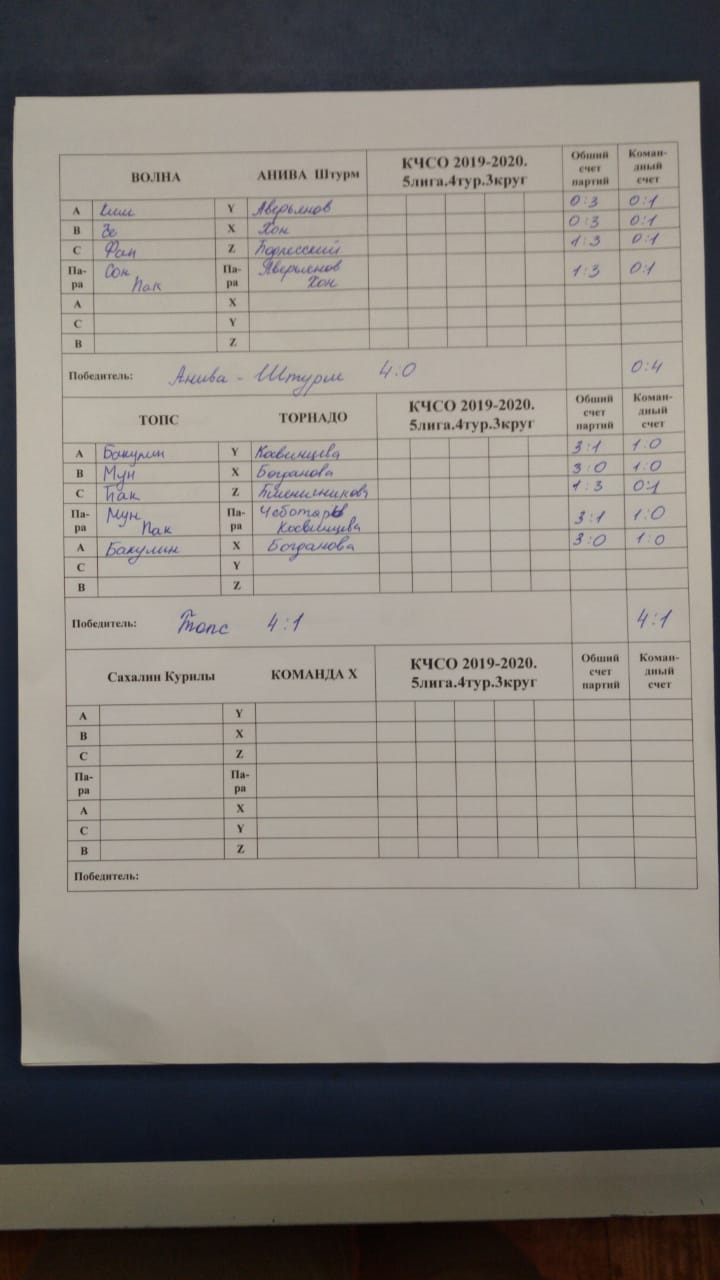 ВОЛНА АНИВА Штурм КЧСО 2019-2020. 5лига.4тур.3круг Общий счет партий Коман-дный счет
А Y Аверьянов 0:3 0:1
В Че X Хон 0:3 0:1
С Фан Z 1:3 0:1
Па-ра Сон Пак Па-ра Аверьянов Хон 1:3 0:1
А X
С Y
В Z
Победитель: Анива - Штурм 4:0 0:4
ТОПС ТОРНАДО КЧСО 2019-2020. 5лига.4тур.3круг Общий счет партий Коман-дный счет
А Бакулин Y Косвинцева 3:1 1:0
В Мун X Богданова 3:0 1:0
С Пак Z Пшеничникова 1:3 0:1
Па-ра Мун Пак Па-ра Косвинцева 3:1 1:0
А Бакулин X Богданова 3:0 1:0
С Y
В Z
Победитель: Топс 4:1 4:1
Сахалин Курилы КОМАНДА X КЧСО 2019-2020. 5лига.4тур.3круг Общий счет партий Коман-дный счет
А Y
В X
С Z
Па-ра Па-ра
А X
С Y
В Z
Победитель: